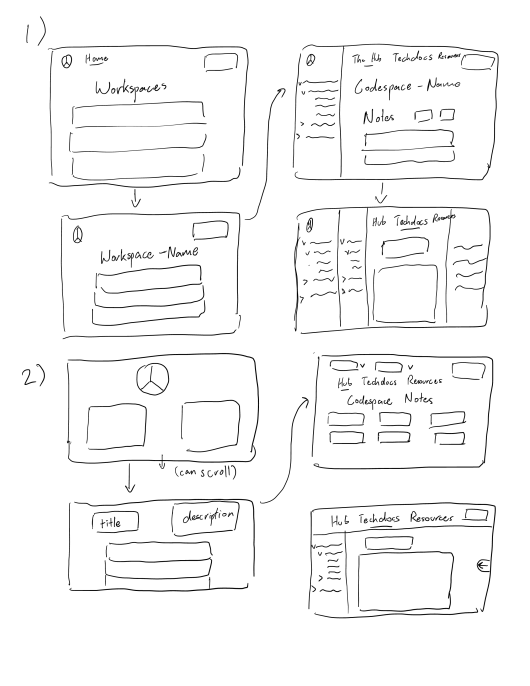 1)
Home
Workspaces
The Hub Techdocs Resources
Codespace - Name
Notes
Workspace - Name
Hub Techdocs Resources
2)
(can scroll)
title
description
Hub Techdocs Resources
Codespace Notes
Hub Techdocs Resources